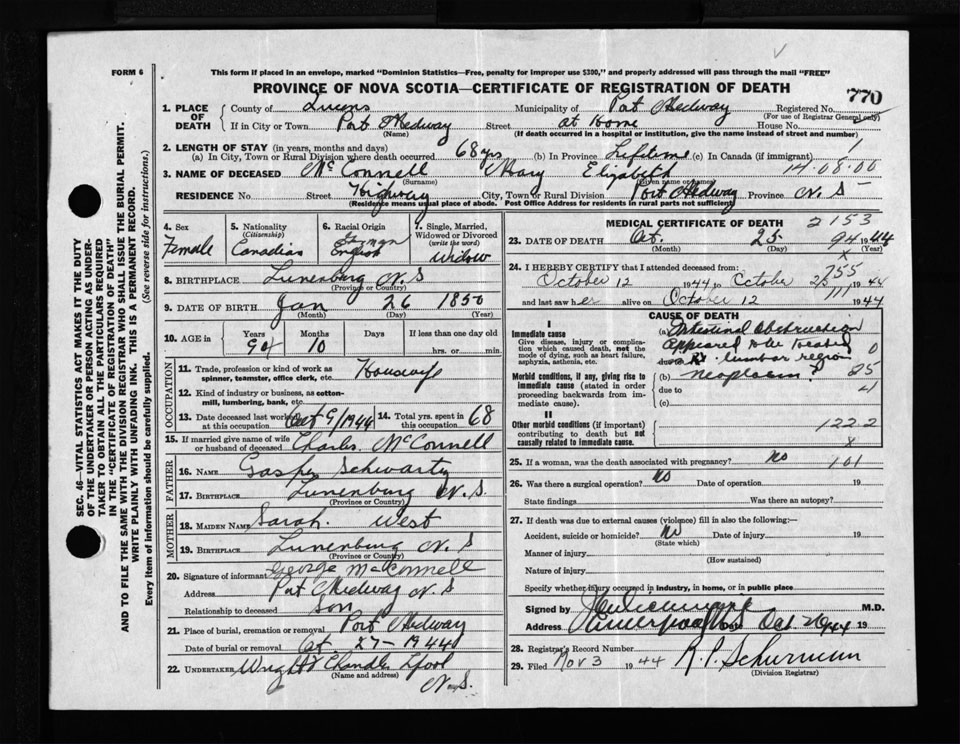 FORM 6
This form if placed in an envelope, marked "Dominion Statistics—Free, penalty for improper use $300," and properly addressed will pass through the mail "FREE"
PROVINCE OF NOVA SCOTIA—CERTIFICATE OF REGISTRATION OF DEATH
770
1. PLACE OF DEATH County of Queens Municipality of Port Medway Registered No.
(For use of Registrar General only)
If in City or Town Port Medway Street at Home House No.
(Name) (If death occurred in a hospital or institution, give the name instead of street and number)
2. LENGTH OF STAY (in years, months and days)
(a) In City, Town or Rural Division where death occurred 68 yrs (b) In Province Lifetime (c) In Canada (if immigrant) 1
14·08·00
3. NAME OF DECEASED McConnell Mary Elizabeth
(Surname) (Given name or names)
RESIDENCE No. Street Highway City, Town or Rural Division Port Medway Province N. S
(Residence means usual place of abode. Post Office Address for residents in rural parts not sufficient)
4. Sex Female
5. Nationality (Citizenship) Canadian
6. Racial Origin German English
7. Single, Married, Widowed or Divorced (write the word) Widow
8. BIRTHPLACE Lunenburg N. S
(Province or Country)
9. DATE OF BIRTH Jan 26 1850
(Month) (Day) (Year)
10. AGE in Years Months Days If less than one day old
94 10 hrs. or min.
OCCUPATION
11. Trade, profession or kind of work as spinner, teamster, office clerk, etc. Housewife
12. Kind of industry or business, as cotton-mill, lumbering, bank, etc.
13. Date deceased last worked at this occupation Oct 9/1944 14. Total yrs. spent in this occupation 68
15. If married give name of wife or husband of deceased Charles McConnell
FATHER
16. NAME Gasper Schwartz
17. BIRTHPLACE Lunenburg N. S.
(Province or Country)
MOTHER
18. MAIDEN NAME Sarah West
19. BIRTHPLACE Lunenburg N. S
(Province or Country)
20. Signature of informant George McConnell
Address Port Medway N S
Relationship to deceased Son
21. Place of burial, cremation or removal Port Medway
Date of burial or removal Oct. 27—1944
22. UNDERTAKER Wright & Chandler Lpool
(Name and address) N. S.
MEDICAL CERTIFICATE OF DEATH
2153
23. DATE OF DEATH Oct. 25 94 1944
(Month) (Day) (Year)
x
24. I HEREBY CERTIFY that I attended deceased from:
755
October 12 1944 to October 25 1944
and last saw her alive on October 12 1944
CAUSE OF DEATH
I
Immediate cause
Give disease, injury or complication which caused death, not the mode of dying, such as heart failure, asphyxia, asthenia, etc.
(a) Intestinal Obstruction
appeared to be located
due to Rt. lumbar region
0
Morbid conditions, if any, giving rise to immediate cause (stated in order proceeding backwards from immediate cause).
(b) neoplasm? 25
due to 4
(c)
II
Other morbid conditions (if important) contributing to death but not causally related to immediate cause.
1222
x
25. If a woman, was the death associated with pregnancy? No 101
26. Was there a surgical operation? No Date of operation 19
State findings Was there an autopsy?
27. If death was due to external causes (violence) fill in also the following:—
Accident, suicide or homicide? No Date of injury 19
(State which)
Manner of injury
(How sustained)
Nature of injury
Specify whether injury occurred in industry, in home, or in public place
Signed by M.D.
Address Liverpool Oct 26 1944 19
28. Registrar's Record Number
29. Filed Nov 3 1944 R. P. Schurman
(Division Registrar)
SEC. 46—VITAL STATISTICS ACT MAKES IT THE DUTY
OF THE UNDERTAKER OR PERSON ACTING AS UNDER-
TAKER TO OBTAIN ALL THE PARTICULARS REQUIRED
IN THE "CERTIFICATE OF REGISTRATION OF DEATH"
AND TO FILE THE SAME WITH THE DIVISION REGISTRAR WHO SHALL ISSUE THE BURIAL PERMIT.
WRITE PLAINLY WITH UNFADING INK. THIS IS A PERMANENT RECORD.
Every item of information should be carefully supplied. (See reverse side for instructions.)